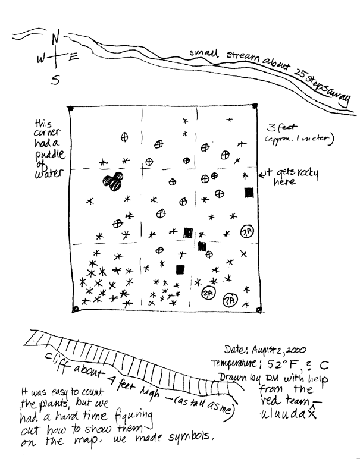 N
W E
S
small stream about 25 steps away
this
corner
had a
puddle
of
water
3 feet
(approx. 1 meter)
it gets rocky
here
?A
?A
?A
cliff about 4 feet high - (as tall as me)
Date: August 2, 2000
Temperature: 52°F, ? C
Drawn by DM with help
from the
red team -
It was easy to count
the plants, but we
had a hard time figuring
out how to show them
on the map. We made symbols.